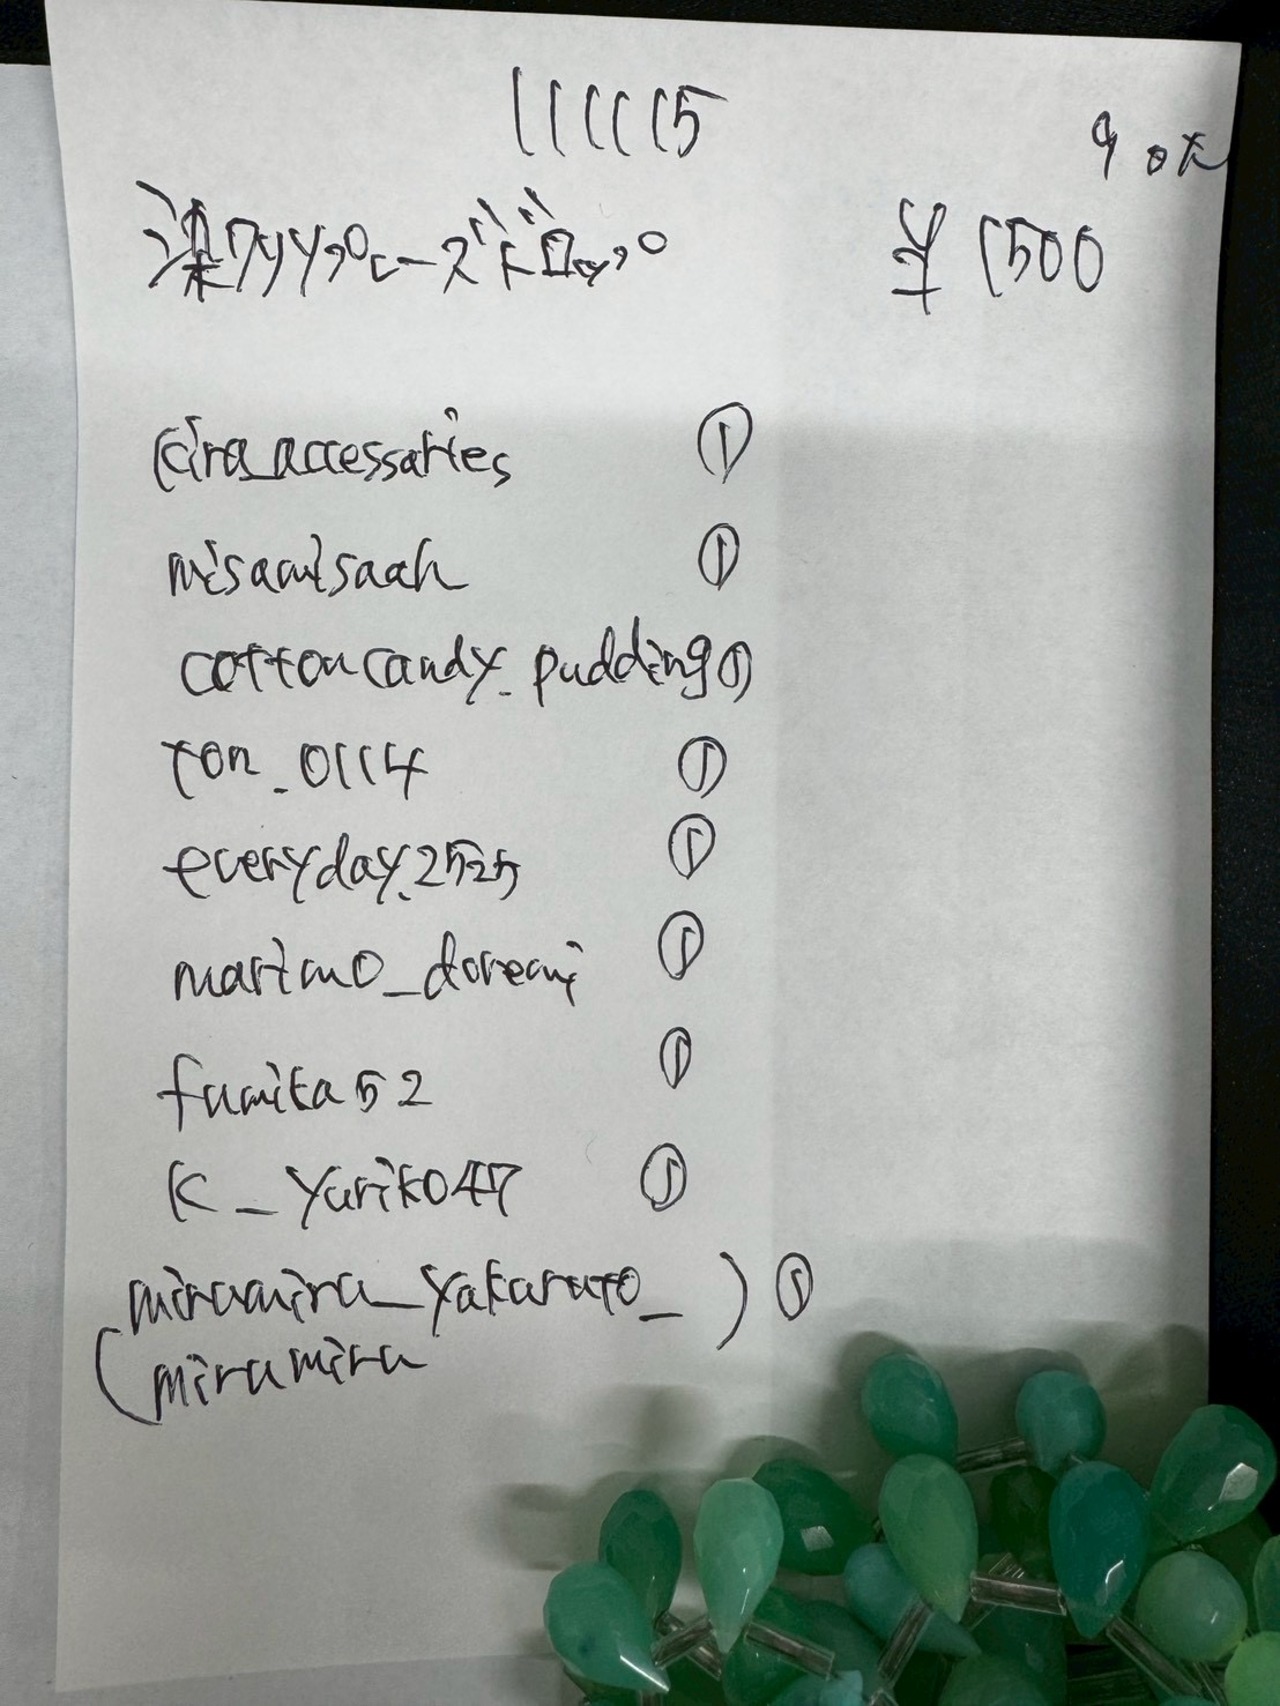 1111115
9 0点
染クリソプレーズドロップ
¥1500
kira_accessaries ①
misamisaah ①
cottoncandy_pudding ①
ton_0114 ①
everyday.2525 ①
marimo_doremi ①
fumita52 ①
K_yuriko47 ①
miramira_yakaruto_) ①
(miramira